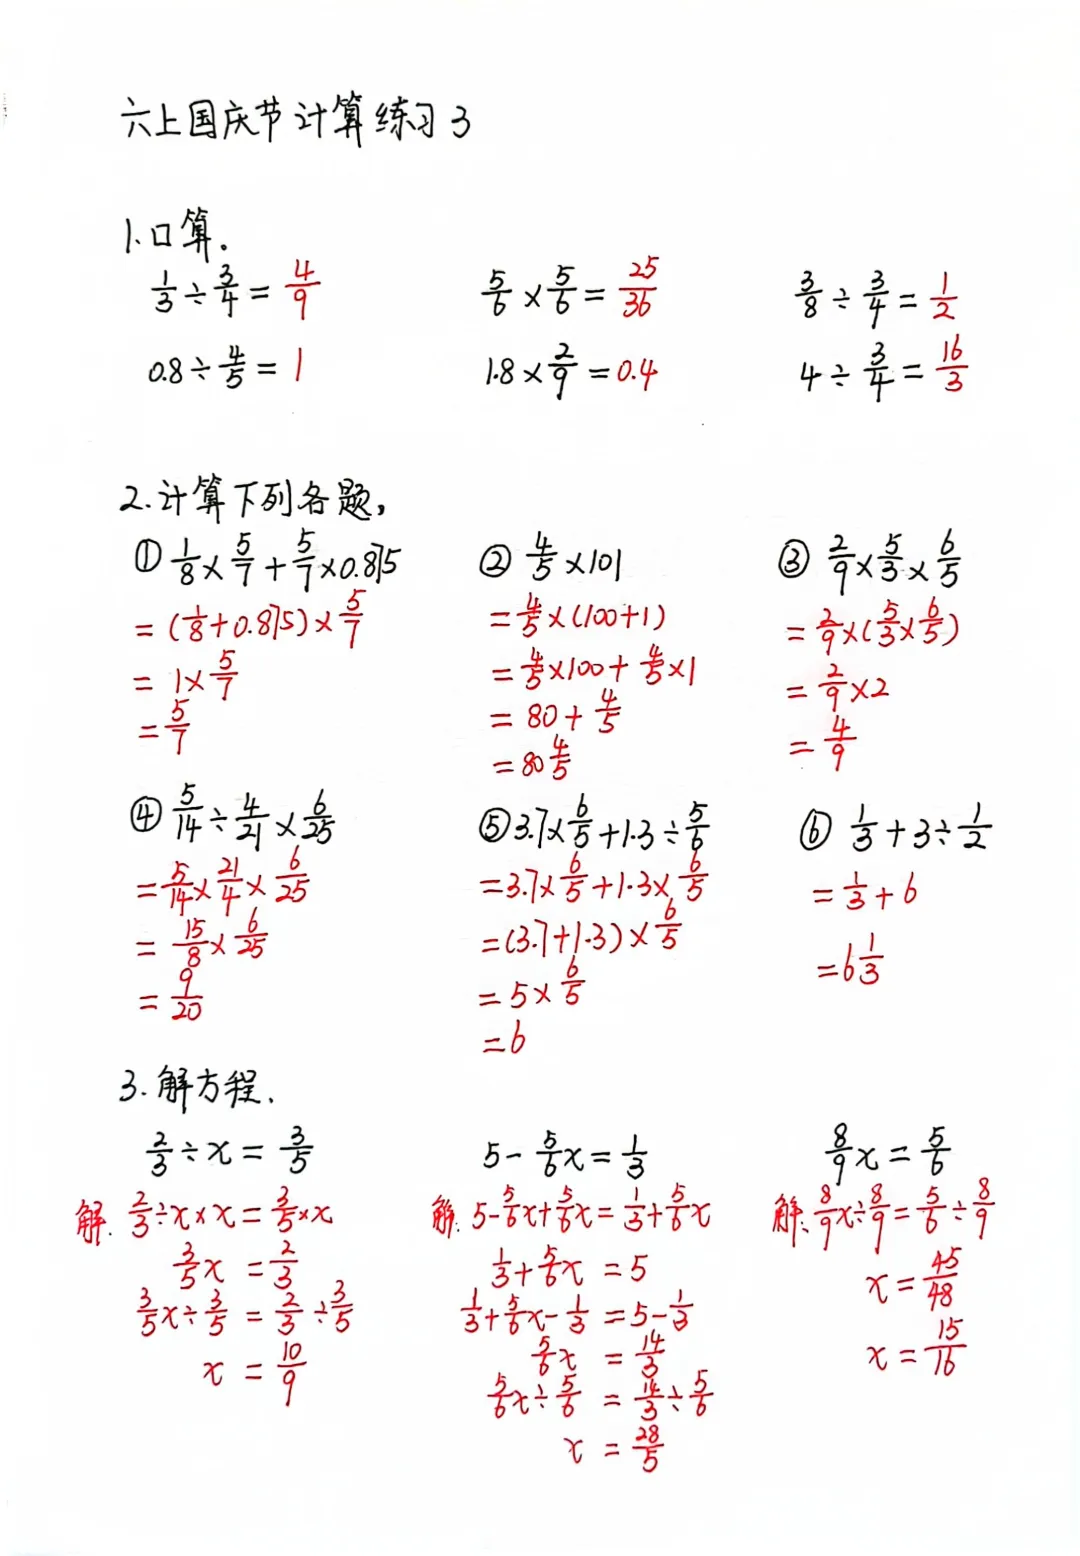 六上国庆节计算练习3
1.口算.
1/3÷3/4=4/9 5/6×5/6=25/36 3/8÷3/4=1/2
0.8÷4/5=1 1.8×2/9=0.4 4÷3/4=16/3
2.计算下列各题,
① 1/8×5/7+5/7×0.875
=(1/8+0.875)×5/7
=1×5/7
=5/7
② 4/5×101
=4/5×(100+1)
=4/5×100+4/5×1
=80+4/5
=80 4/5
③ 2/9×5/3×6/5
=2/9×(5/3×6/5)
=2/9×2
=4/9
④ 5/14÷4/21×6/25
=5/14×21/4×6/25
=15/8×6/25
=9/20
⑤ 3.7×6/5+1.3÷5/6
=3.7×6/5+1.3×6/5
=(3.7+1.3)×6/5
=5×6/5
=6
⑥ 1/3+3÷1/2
=1/3+6
=6 1/3
3.解方程.
2/3÷x=3/5
解:2/3÷x×x=3/5×x
3/5x=2/3
3/5x÷3/5=2/3÷3/5
x=10/9
5-5/6x=1/3
解:5-5/6x+5/6x=1/3+5/6x
1/3+5/6x=5
1/3+5/6x-1/3=5-1/3
5/6x=14/3
5/6x÷5/6=14/3÷5/6
x=28/5
8/9x=5/6
解:8/9x÷8/9=5/6÷8/9
x=45/48
x=15/16